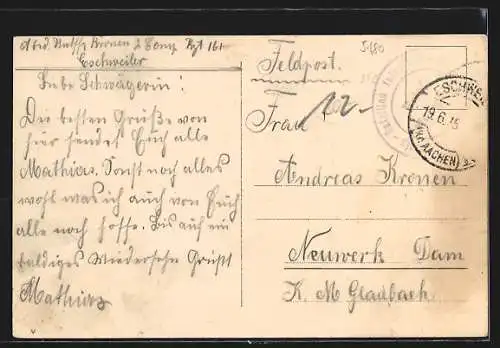 Kronen 2 Comp Rgt 161
Eschweiler
Liebe Schwägerin!
Die besten Grüße von
hier sendet Euch alle
Mathias. Sonst noch alles
wohl was ich auch von Euch
alle noch hoffe. Bis auf ein
baldiges Wiedersehn Grüßt
Mathias
5480
Feldpost.
22-
Frau
Andreas Kronen
Neuwerk Dam
K. M Glaubach
ESCHWEI
19.6.15
AACHEN